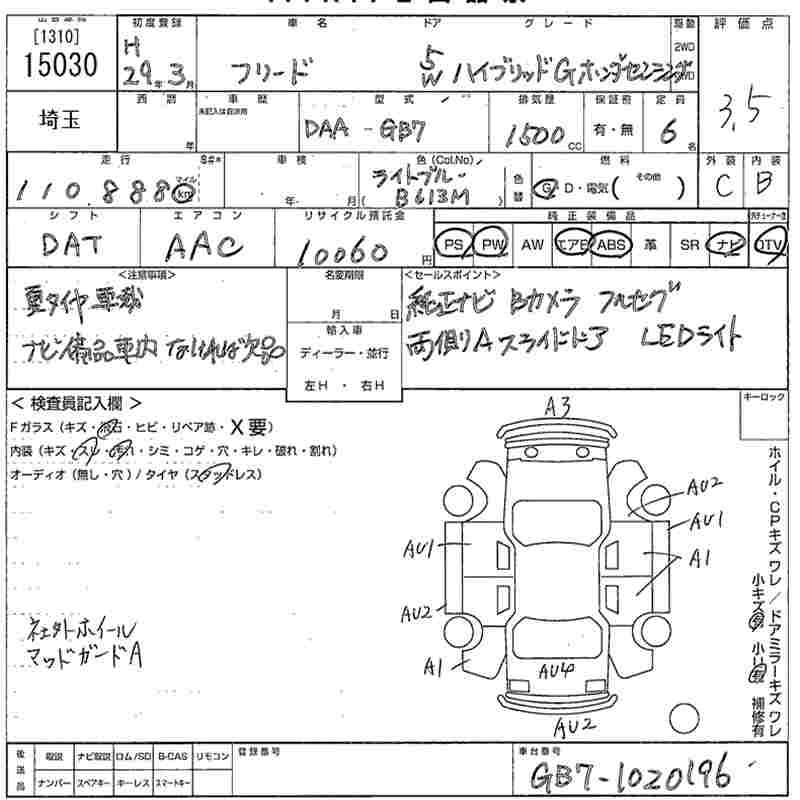 [1310]
15030
初度登録
H
29年3月
車名
フリード
ドア
5
W
グレード
ハイブリッドGホンダセンシング
駆動
2WD
評価点
3.5
埼玉
西暦
年
車歴
型式
DAA-GB7
排気量
1500
CC
保証書
有・無
定員
6
名
走行
110.888
マイル
km
車検
年・月
色(Col.No)
ライトブルー
(B613M)
色替
燃料
G・D・電気(その他)
外装
C
内装
B
シフト
DAT
エアコン
AAC
リサイクル預託金
10060円
純正装備品
PS PW AW エアB ABS 革 SR ナビ TV
<注意事項>
夏タイヤ車載
ナビ備品車内なければ欠品
名変期限
月 日
輸入車
ディーラー・並行
左H・右H
<セールスポイント>
純正ナビ Bカメラ フルセグ
両側Aスライドドア LEDライト
<検査員記入欄>
Fガラス(キズ・飛石・ヒビ・リペア跡・X要)
内装(キズ・スレ・汚れ・シミ・コゲ・穴・キレ・破れ・割れ)
オーディオ(無し・穴)/タイヤ(スタッドレス)
社外ホイール
マッドガードA
キーロック
A3
AU2
AU1
AU1
A1
AU2
A1
AU4
AU2
ホイル・CPキズワレ/ドアミラーキズワレ
補修有
後送品
取説 ナビ取説 ロム/SD B-CAS リモコン
ナンバー スペアキー キーレス スマートキー
登録番号
車台番号
GB7-1020196